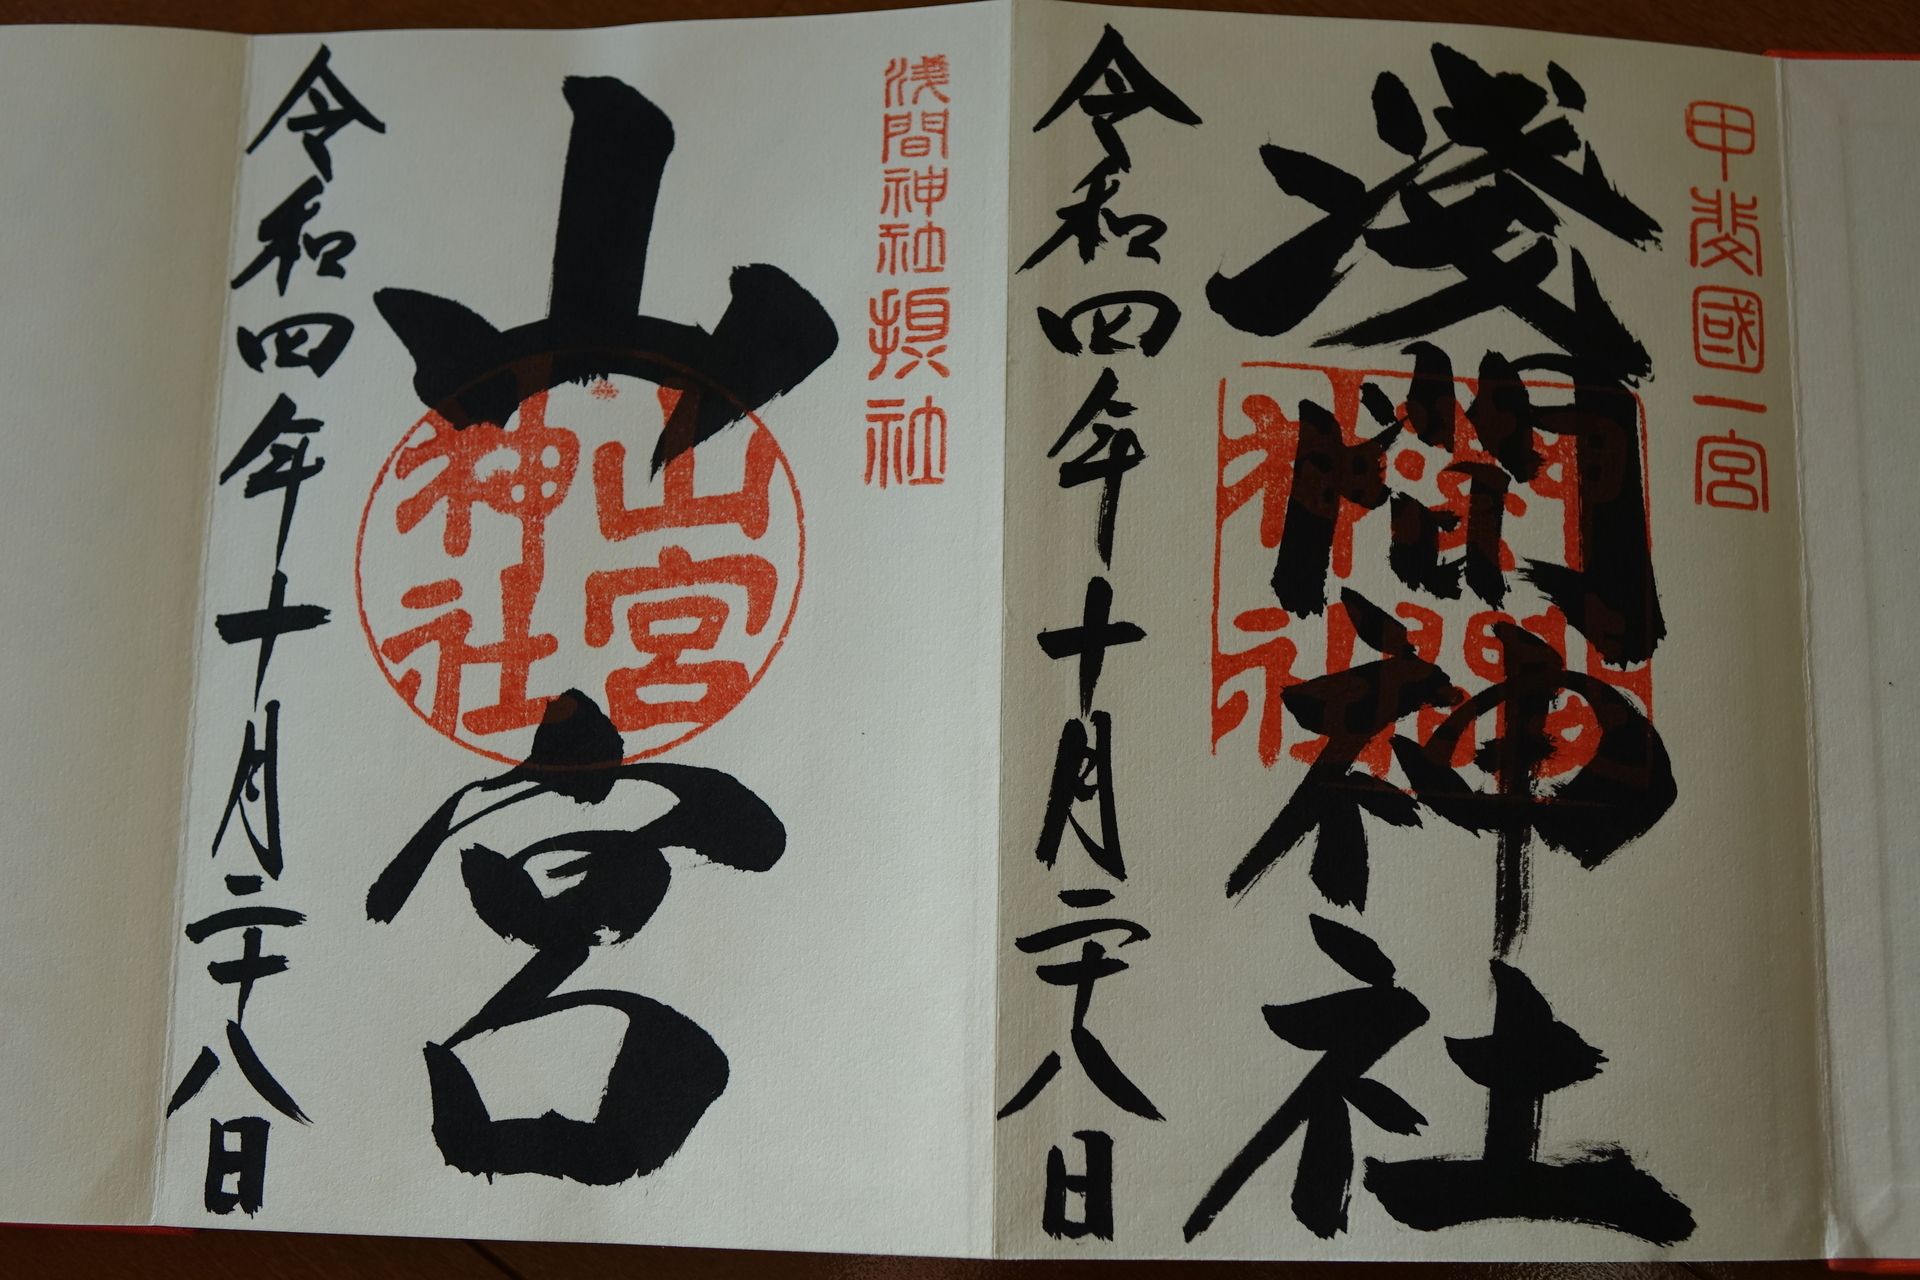 甲斐國一宮
淺間神社
淺間神社
令和四年十月二十八日
淺間神社摂社
山宮
山宮神社
令和四年十月二十八日